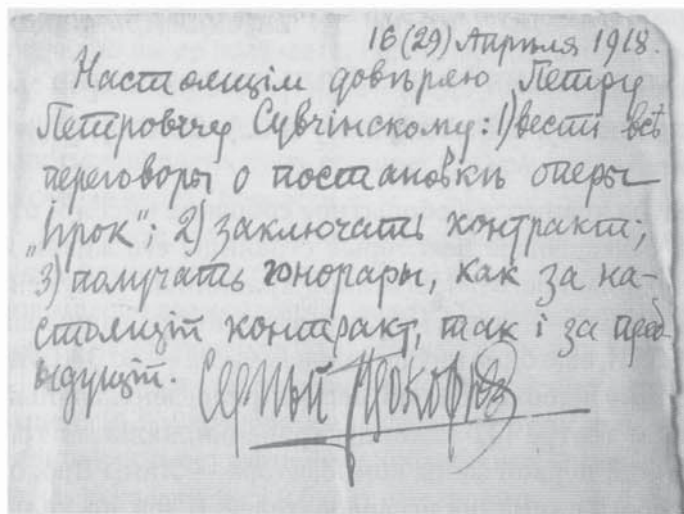 16 (29) Апрѣля 1918.
Настоящім довѣряю Петру
Петровічу Сувчінскому: 1) вести всѣ
переговоры о постановкѣ оперы
„Ігрок“; 2) заключать контракт;
3) получать гонорары, как за на-
стоящій контракт, так і за пред-
ыдущій.
Сергѣй Прокофьев